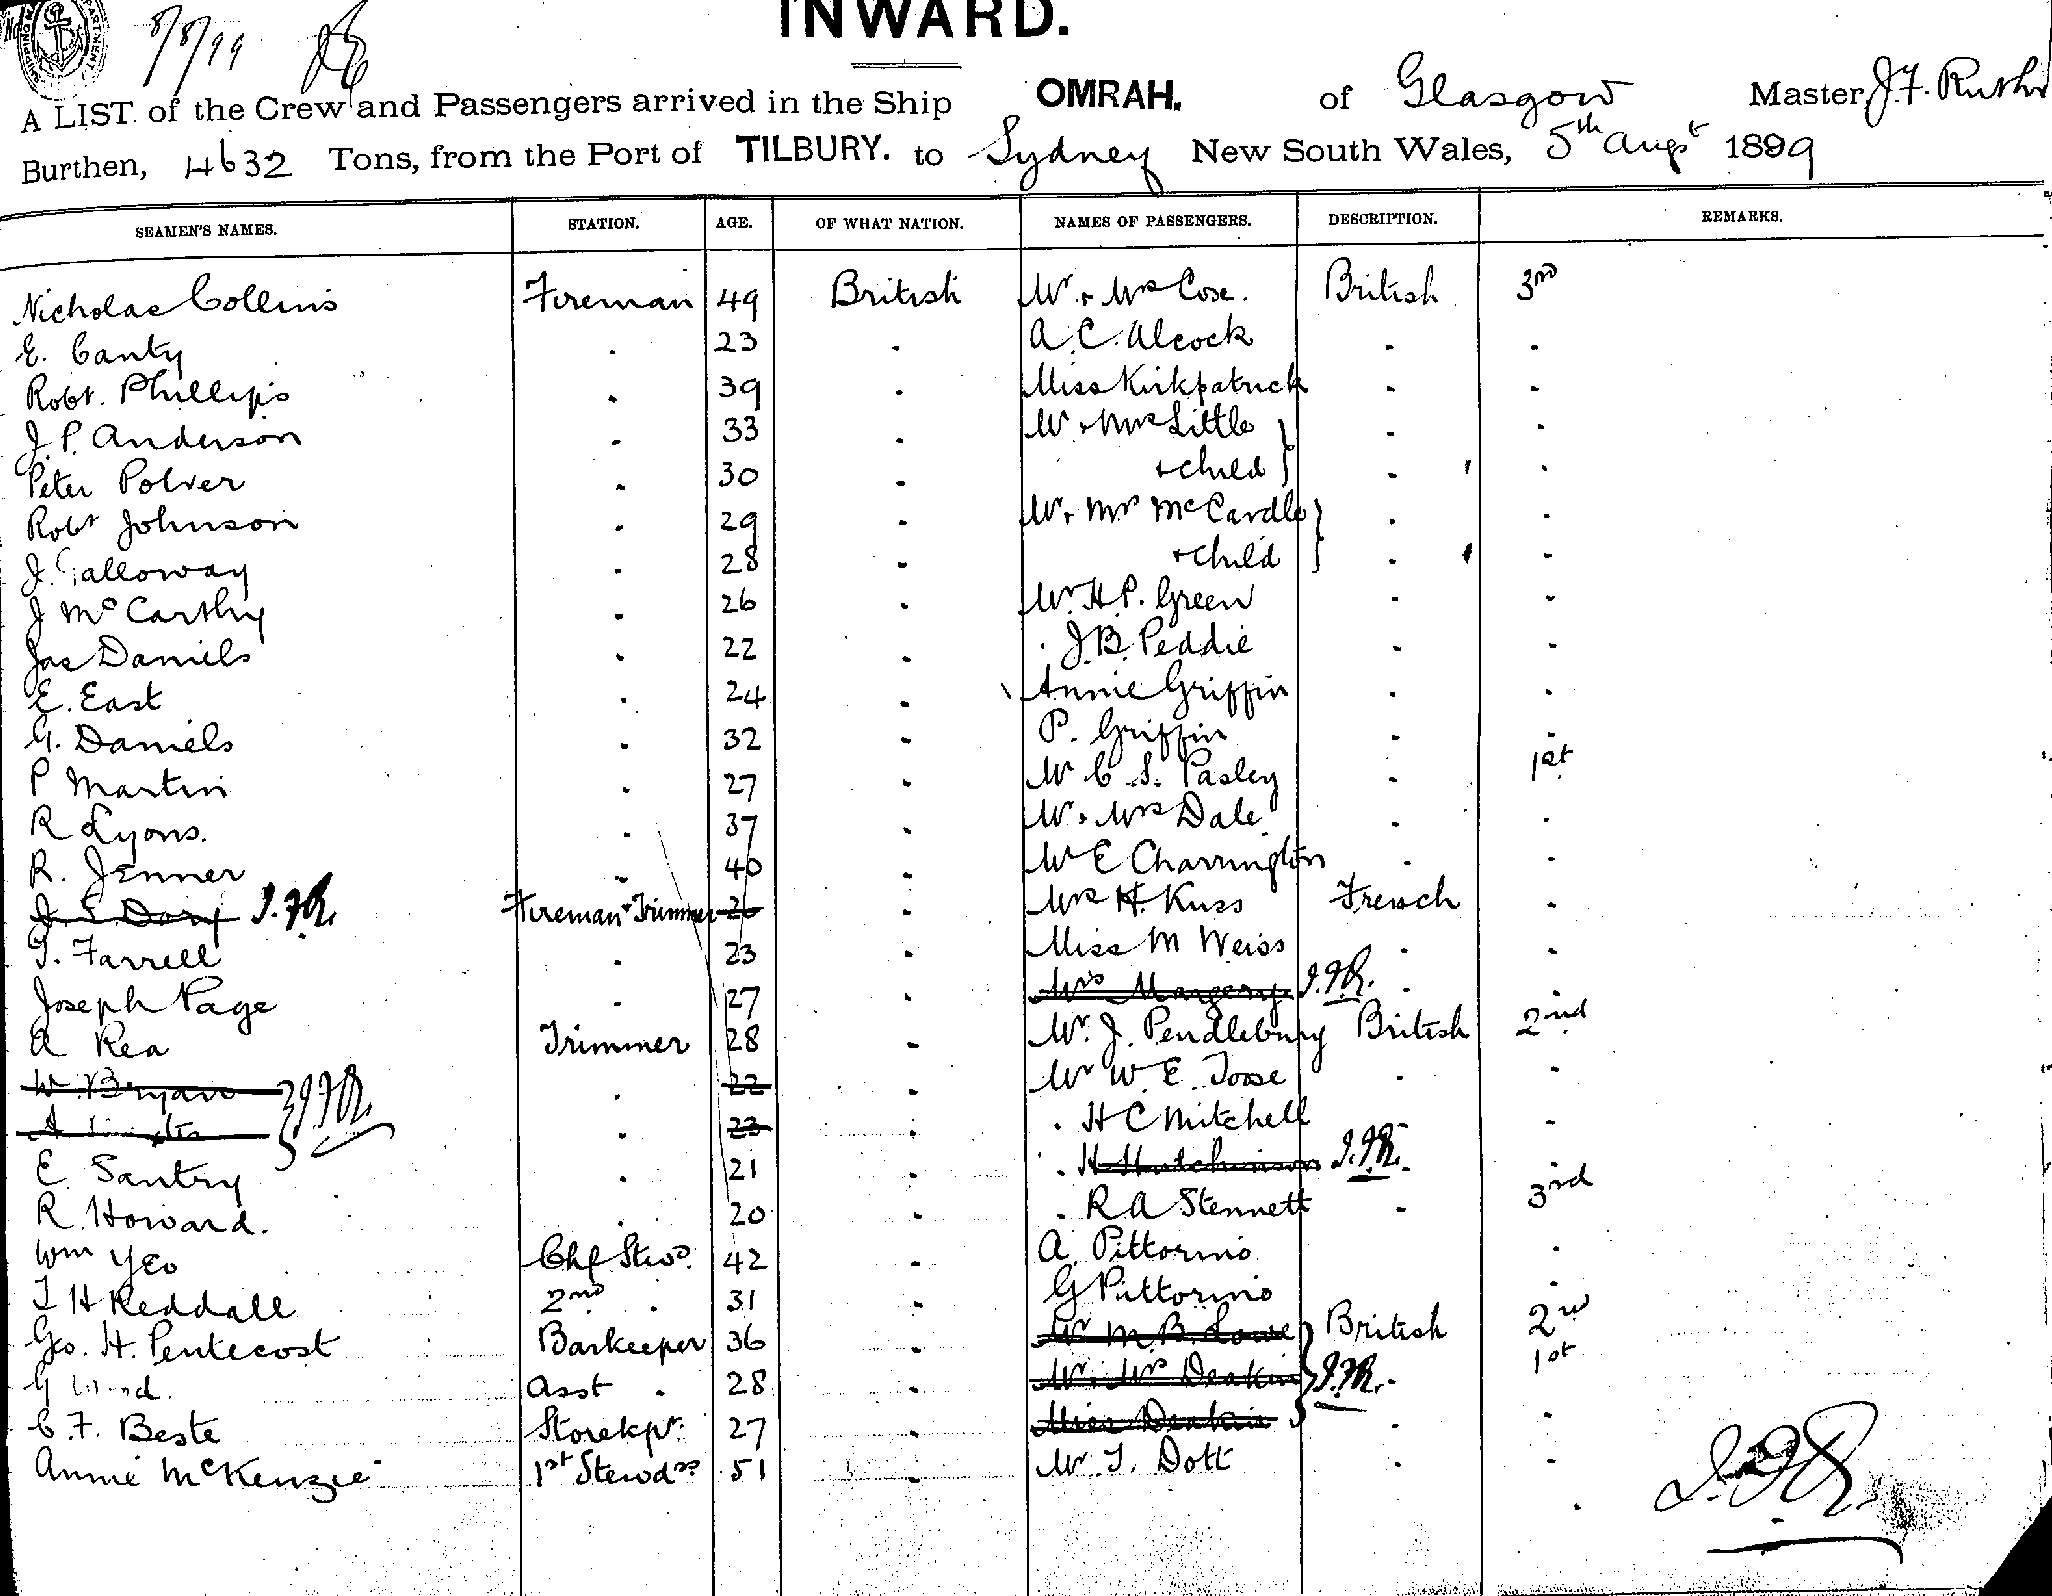 INWARD.
8/8/99
A LIST of the Crew and Passengers arrived in the Ship OMRAH. of Glasgow Master J. F. Ruth
Burthen, 4632 Tons, from the Port of TILBURY. to Sydney New South Wales, 5th Augst 1899
SEAMEN'S NAMES. STATION. AGE. OF WHAT NATION. NAMES OF PASSENGERS. DESCRIPTION. REMARKS.
Nicholas Collins Fireman 49 British Mr + Mrs Cose. British 3rd
E. Canty . 23 . A. C. Alcock . .
Robt. Phillips . 39 . Miss Kirkpatrick . .
J. P. Anderson . 33 . Mr + Mrs Little . .
Peter Polver . 30 . + child . .
Robt Johnson . 29 . Mr + Mrs McCardle . .
J. Galloway . 28 . + child . .
J McCarthy . 26 . Mr. H. P. Green . .
Jas Daniels . 22 . . J. B. Peddie . .
E. East . 24 . Annie Griffin . .
G. Daniels . 32 . P. Griffin . .
P Martin . 27 . Mr C. S. Pasley . 1st
R Lyons. . 37 . Mr + Mrs Dale . .
R. Jenner . 40 . Mr E Charrington . .
J. E. Davy J.F.R. Fireman + Trimmer 26 . Mrs H. Kuss French .
T. Farrell . 23 . Miss M Weiss . .
Joseph Page . 27 . Mrs Margery J.F.R. . .
A Rea Trimmer 28 . Mr. J. Pendlebury British 2nd
W. Bryan J.F.R. . 22 . Mr W. E. Toose . .
A . 23 . . H C Mitchell .
E. Santry . 21 . . H Hutchinson J.F.R. .
R. Howard. . 20 . . R A Stennett . 3rd
Wm Yeo Chf Stwd. 42 . A. Pittorino .
T H Reddall 2nd . 31 . G Pittorino .
Geo. H. Pentecost Barkeeper 36 . Mr M. B. Lowe British 2nd
G Asst . 28 . Mr + Mrs Deakin J.F.R. . 1st
C. F. Beste Storekpr. 27 . Miss Deakin . .
Annie McKenzie 1st Stewdss 51 . Mr. T. Dott . .
J.F.R.